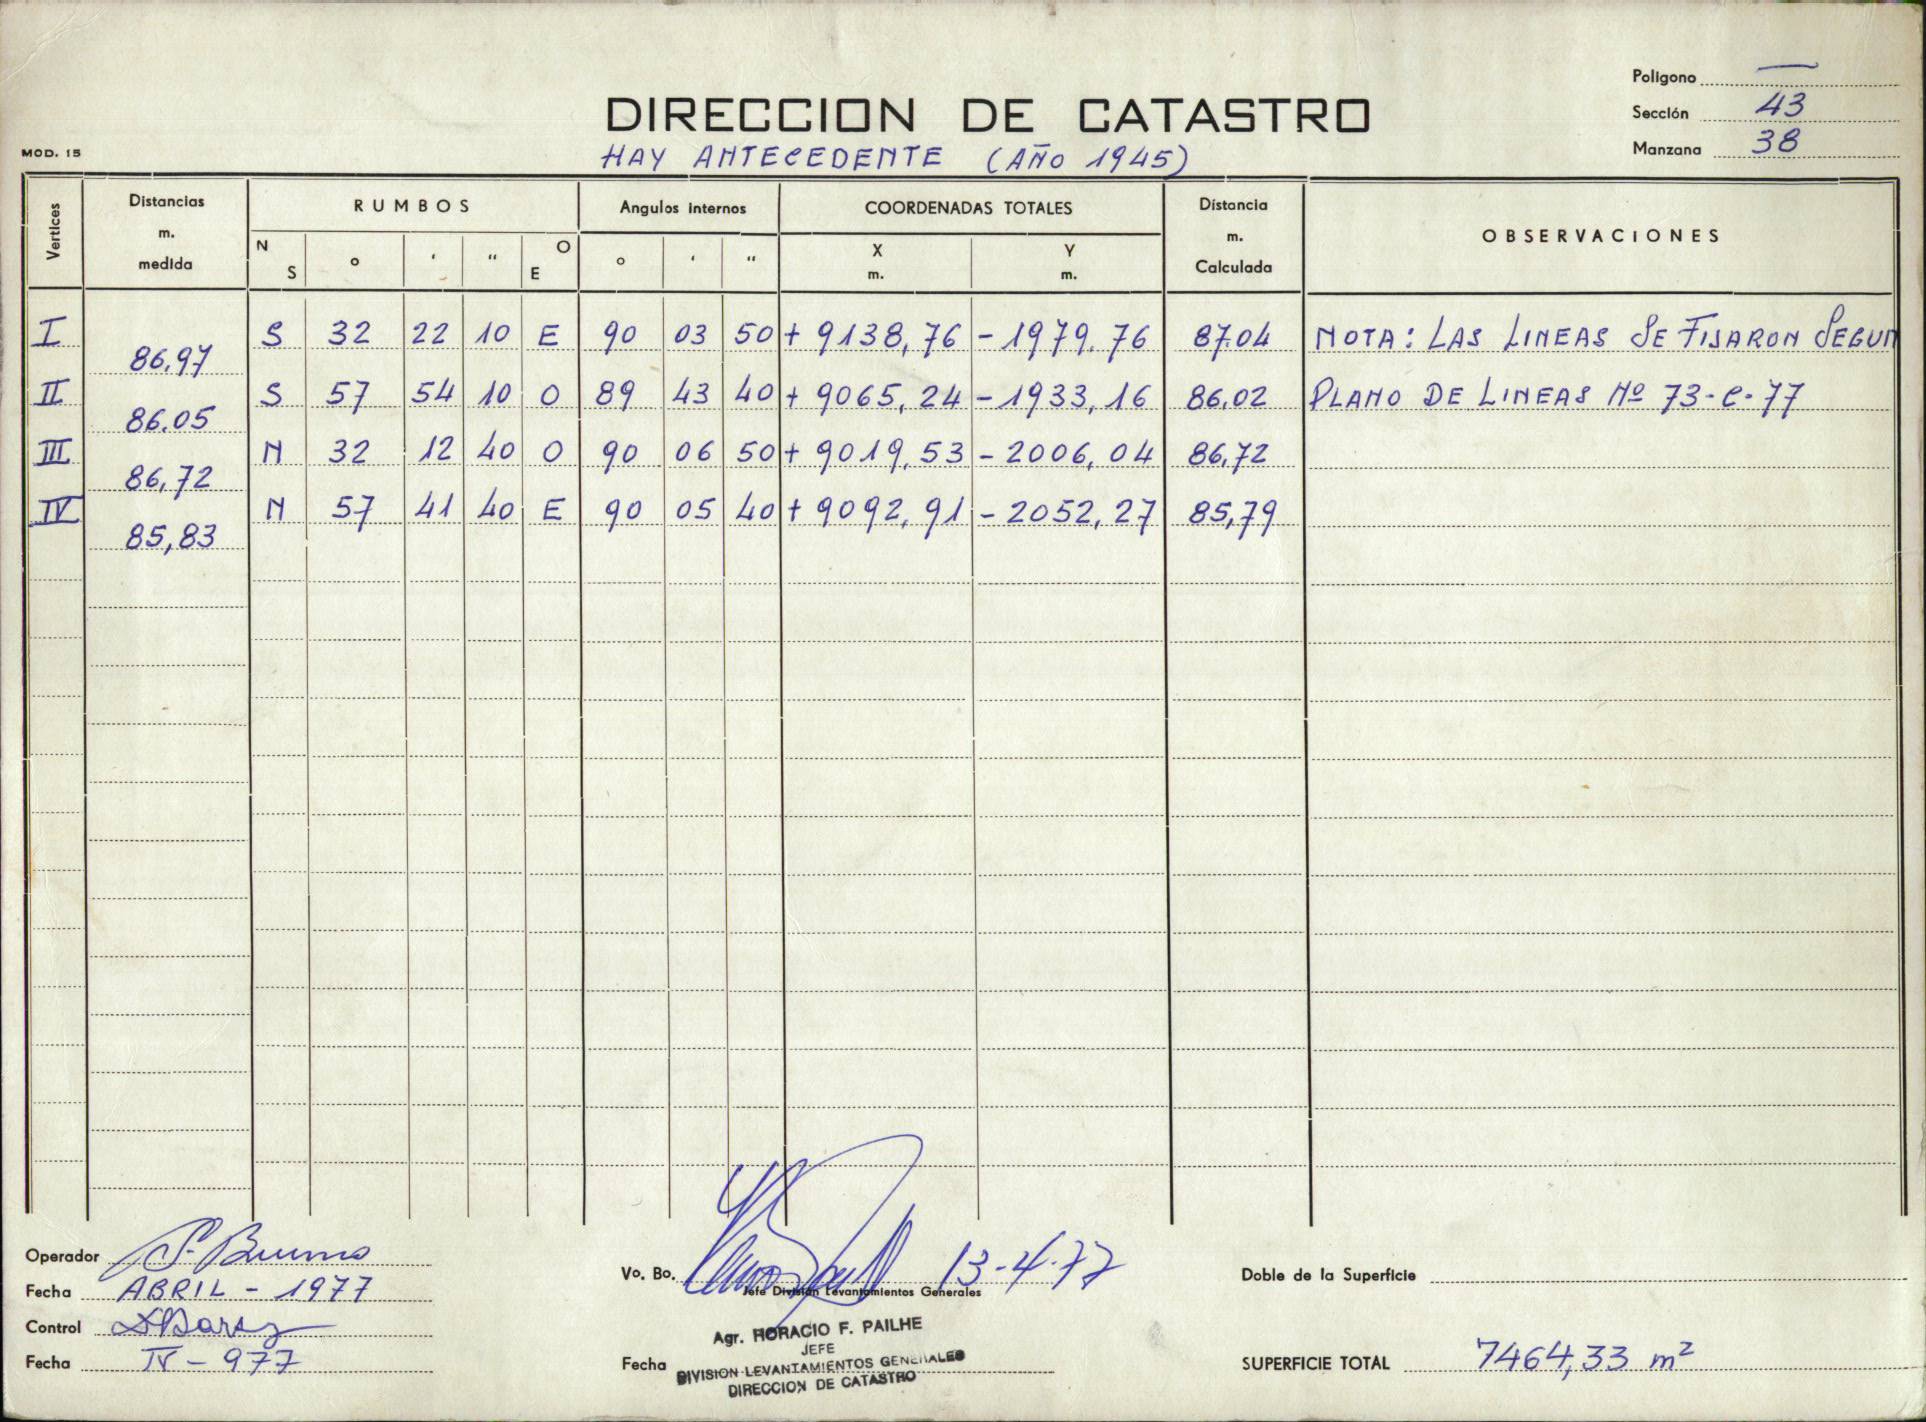 Polígono —
DIRECCION DE CATASTRO
Sección 43
MOD. 15
HAY ANTECEDENTE (AÑO 1945)
Manzana 38
Vertices
Distancias m. medida
RUMBOS
Angulos internos
COORDENADAS TOTALES
Distancia m. Calculada
OBSERVACIONES
N S ° ' " O E ° ' " X m. Y m.
I S 32 22 10 E 90 03 50 + 9138,76 - 1979.76 87.04 NOTA: LAS LINEAS SE FIJARON SEGUN
86.97
II S 57 54 10 O 89 43 40 + 9065,24 - 1933,16 86.02 PLANO DE LINEAS Nº 73-C-77
86.05
III N 32 12 40 O 90 06 50 + 9019,53 - 2006,04 86,72
86,72
IV N 57 41 40 E 90 05 40 + 9092,91 - 2052,27 85,79
85,83
Operador
Vo. Bo. 13-4-77
Doble de la Superficie
Fecha ABRIL - 1977
Jefe División Levantamientos Generales
Control
Agr. HORACIO F. PAILHE
JEFE
Fecha IV - 977
Fecha
DIVISION LEVANTAMIENTOS GENERALES
DIRECCION DE CATASTRO
SUPERFICIE TOTAL 7464,33 m²